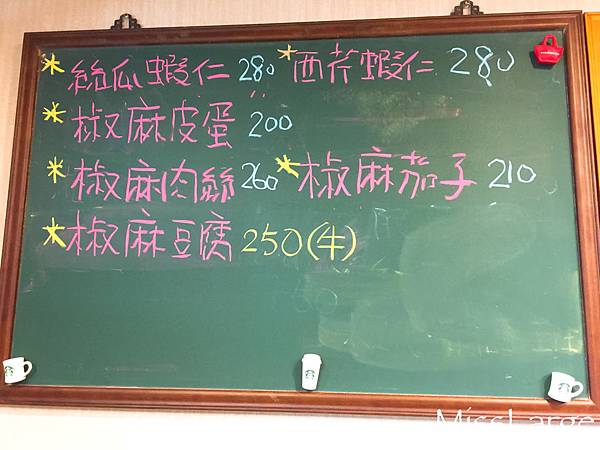 *絲瓜蝦仁 280 *西芹蝦仁 280
*椒麻皮蛋 200
*椒麻肉絲 260 *椒麻茄子 210
*椒麻豆腐 250(牛)
MissLarge